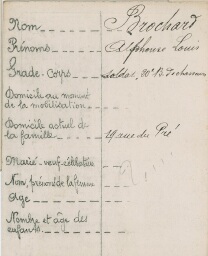 Nom
Brochard
Prénoms
Alphonse Louis
Grade - Corps
Soldat, 20e B. de chasseurs
Domicile au moment
de la mobilisation
Domicile actuel de
la famille
Rue du Pré
Marié - veuf - célibataire
Nom, prénoms de la femme
Age
Nombre et âge des
enfants